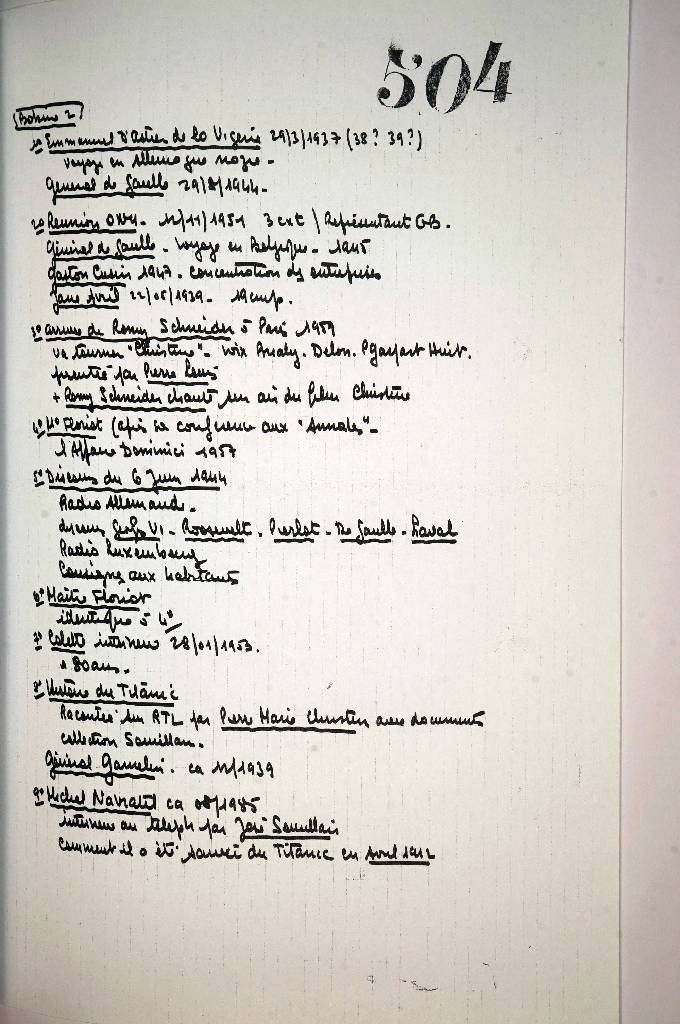 504
Bobine 2
1° Emmanuel D'astier de la Vigerie 29/3/1937 (38? 39?)
voyage en Allemagne nazie -
General de Gaulle 29/8/1944 -
2° Reunion ONU - 12/11/1951 3 ext \ Représentant GB.
Général de Gaulle - Voyage en Belgique - 1945
Gaston Cusin 1947 - concentration des entreprises
Jane Avril 22/05/1939 -
3° arrivée de Romy Schneider à Paris 1959
va tourner "Christine" - Delon.
présentée par Pierre
+ Romy Schneider chante un air du film Christine
4° Me Floriot (après sa conference aux "Annales" -
l'Affaire Dominici 1957
5° Discours du 6 Juin 1944
Radio Allemande.
discours Georges VI - Roosevelt - Pierlot - De Gaulle - Laval
Radio Luxembourg
Consignes aux habitants
6° Maitre Floriot
identique à 4°
7° Colette interview 28/01/1953.
80 ans.
8° Histoire du Titanic
Racontée sur RTL par Pierre Marie Christin avec documents
collection
Général Gamelin. ca 12/1939
9° Michel Navratil ca 08/1985
interview au teleph par José
Comment il a été sauvé du Titanic en Avril 1912